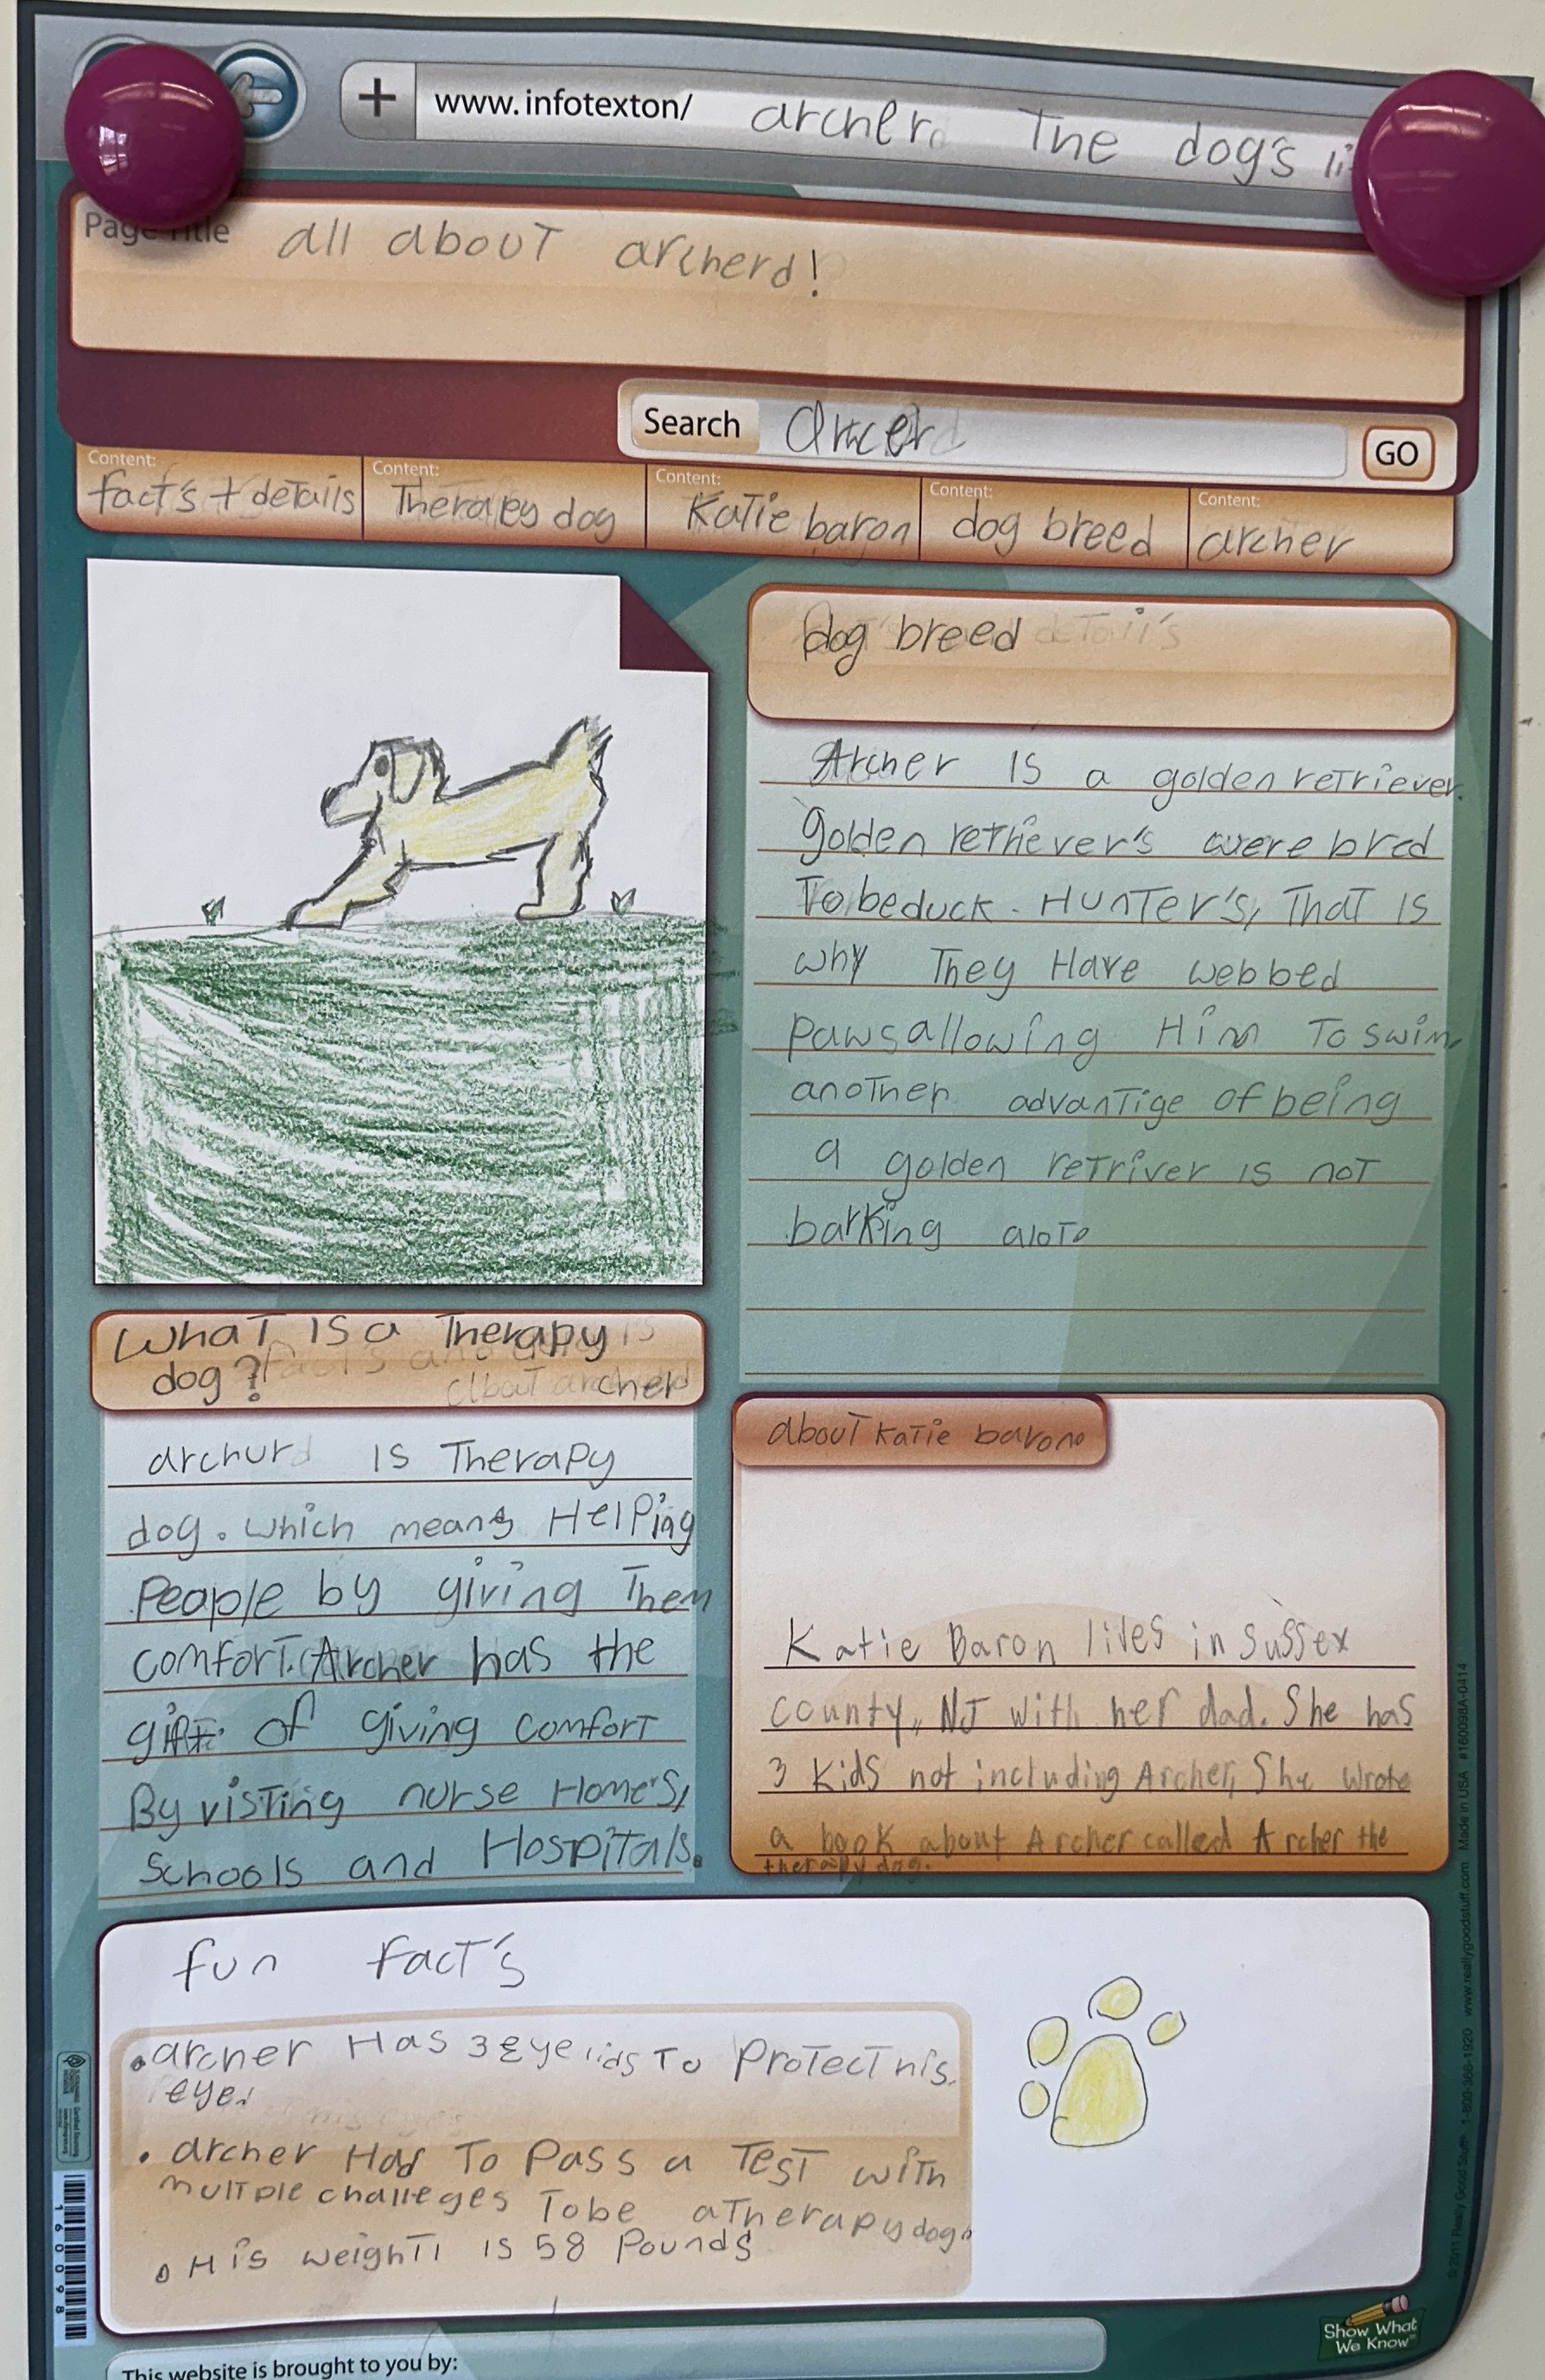 www.infotexton/ archer. The dog's
Page Title all about archerd!
Search Archer
GO
Content: Content: Content: Content: Content:
fact's + details Therapy dog Katie baron dog breed archer
dog breed
Archer is a golden retriever.
Golden retriever's were bred
To be duck. Hunter's, That is
why They Have webbed
paws allowing Him To swim.
another advantige of being
a golden retriver is not
barking alot.
What is a Therapy
dog?
archur is Therapy
dog. which means Helping
People by giving Them
comfort. Archer has the
gift of giving comfort
By visting nurse Home's,
Schools and Hospitals.
about Katie baron.
Katie Baron lives in Sussex
county, NJ with her dad. She has
3 kids not including Archer, She wrote
a book about Archer called Archer the
therapy dog.
fun fact's
• archer Has 3 Eyelids To Protect his
eye.
• archer Had To Pass a Test with
multple challeges To be a Therapy dog.
• His weight is 58 Pounds
This website is brought to you by:
Show What
We Know
© 2011 Really Good Stuff® 1-800-366-1920 www.reallygoodstuff.com Made in USA #160098A-0414
160098